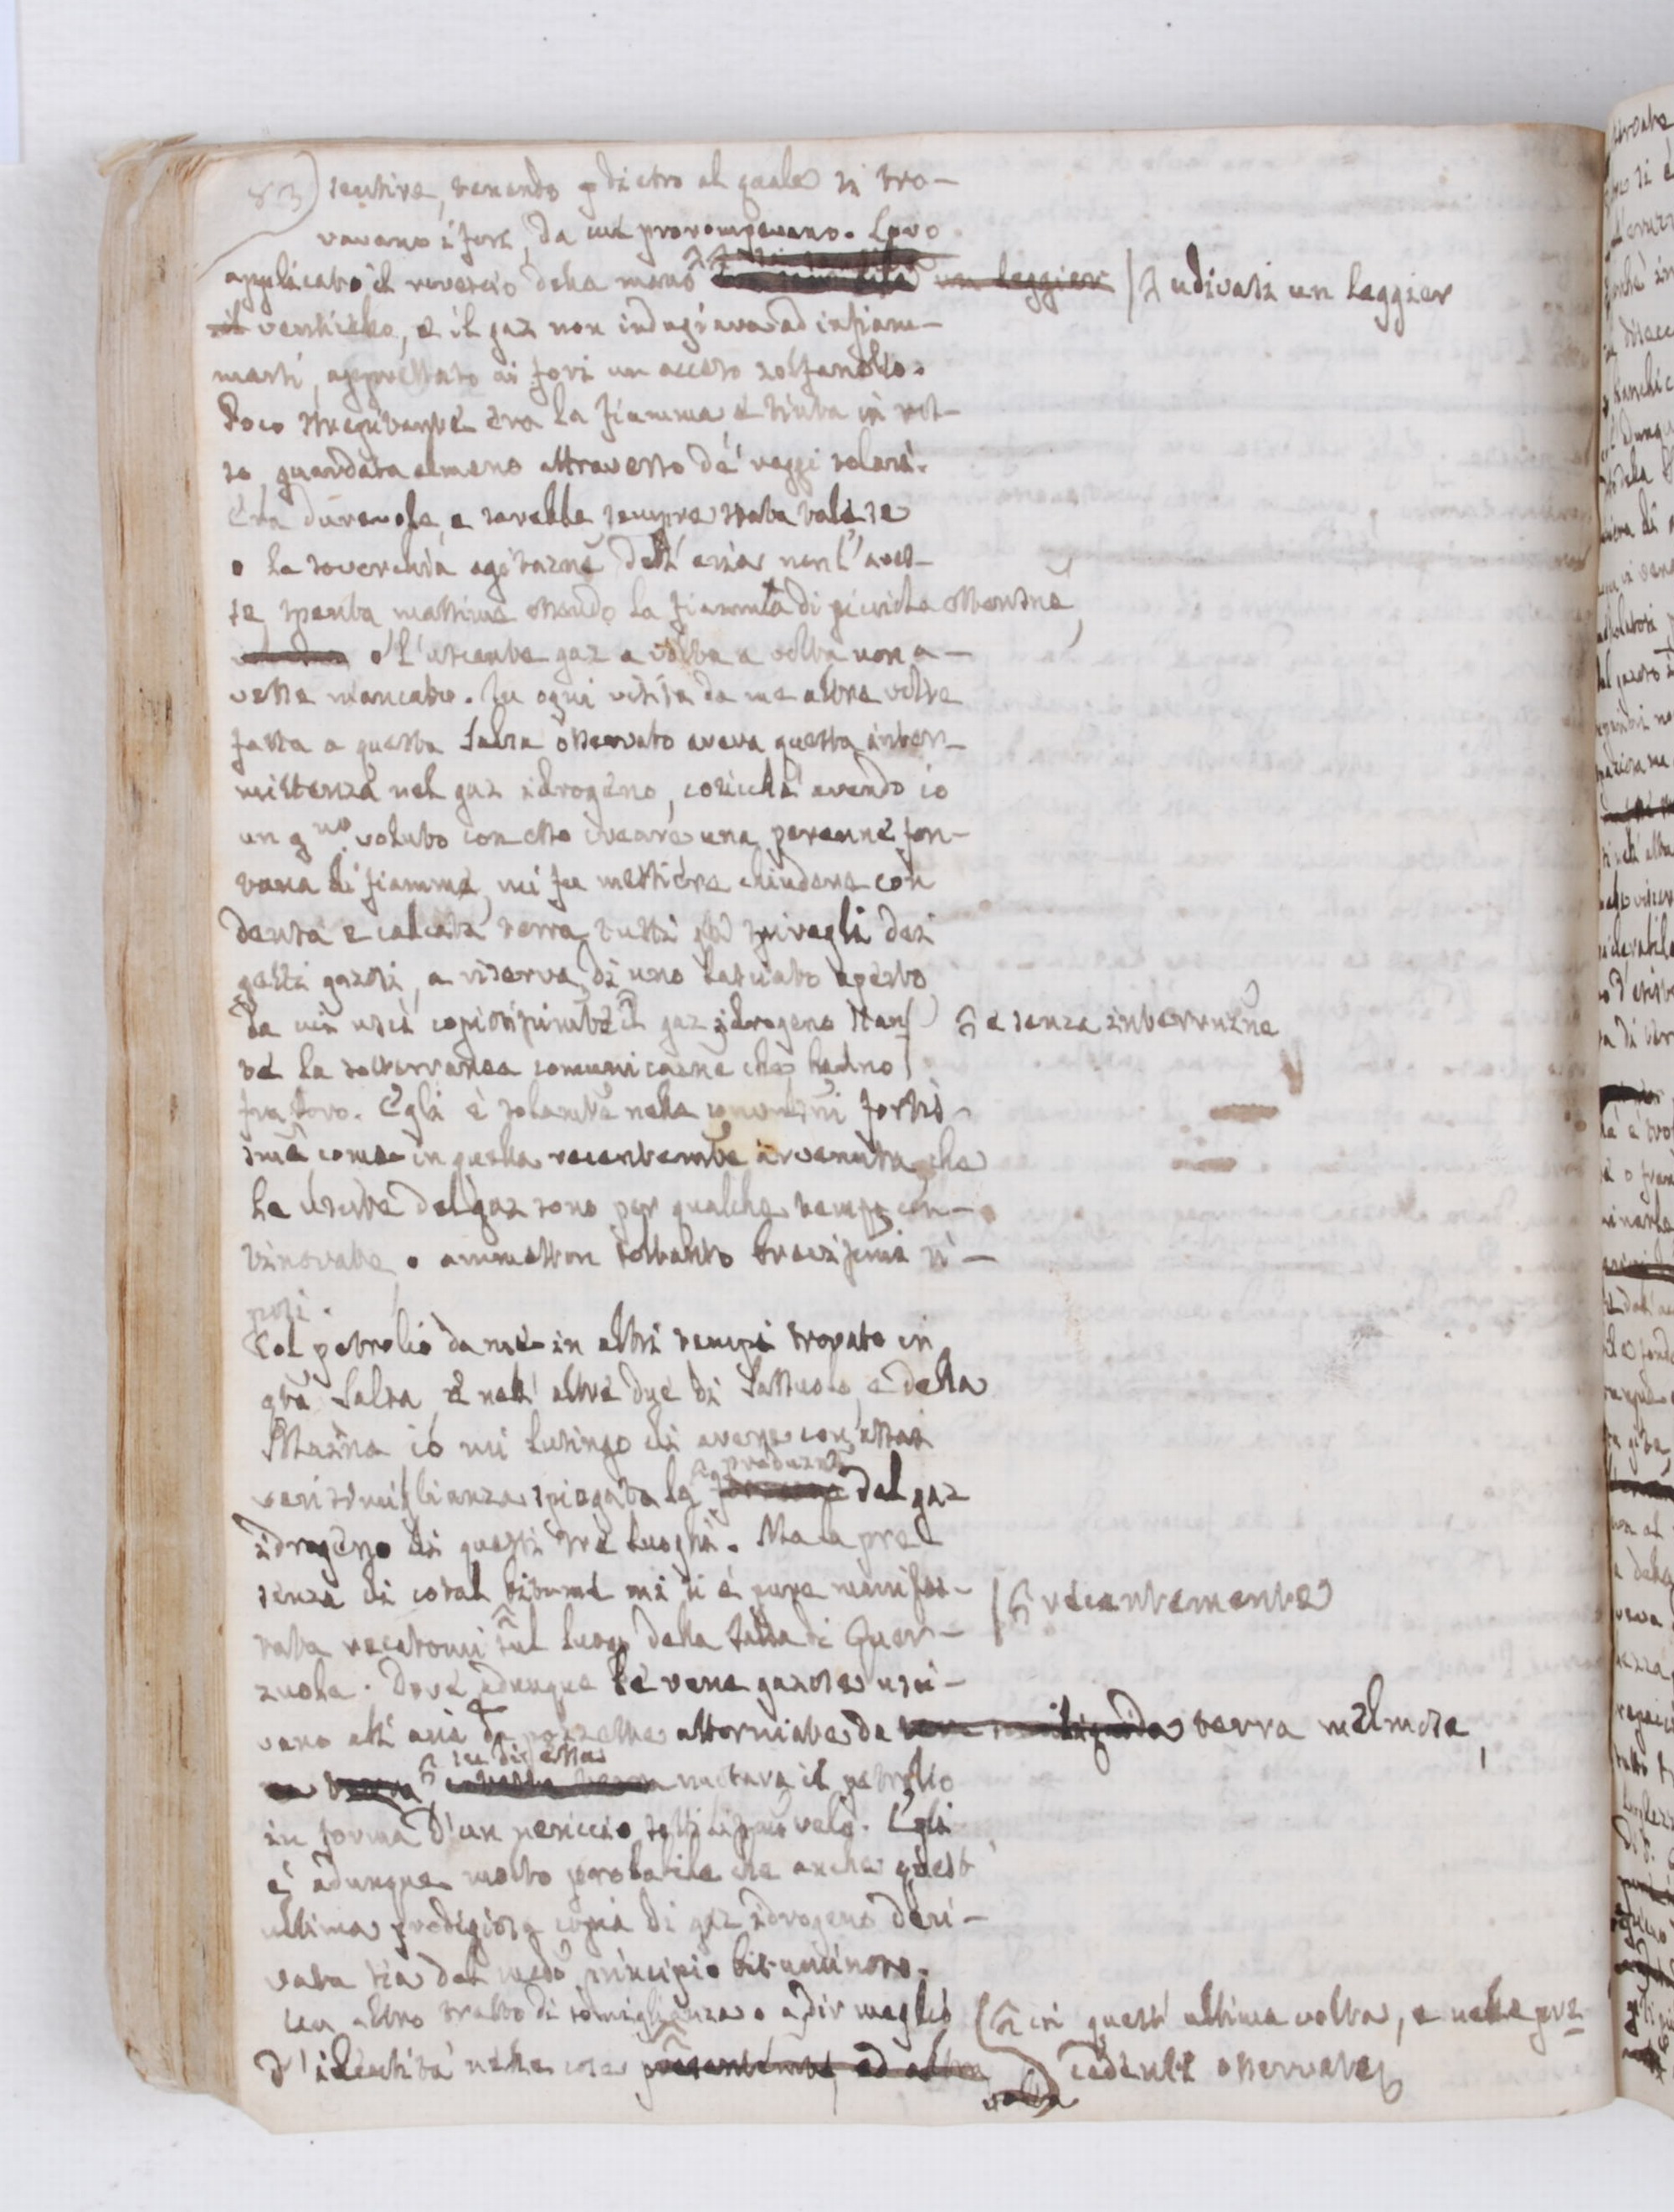 sentire, venendo p dietro al quale si tro-
vavano i fori, da cui prorompevano. Loro
applicato il rovescio della mano un leggier udivasi un leggier
il venticello, e il gaz non indugiava ad infiam-
marsi, appressato ai fori un acceso zolfanello.
Poco strepitante era la fiamma e tinta in ros-
so guardata almeno attraverso de' raggi solari.
Era durevole, e sarebbe sempre stata tale, se
o la soverchia agitazne dell' aria non l' aves-
se spenta massime essendo la fiamma di picciola estensne,
o l' uscente gaz a volta a volta non a-
vesse mancato. In ogni visita da me altre volte
fatta a questa Salsa osservato aveva questa inter-
mittenza nel gaz idrogeno, cosicchè avendo io
un g.no voluto con esso creare una perenne fon-
tana di fiamme, mi fu mestiere chiudere con
densa e calcata terra tutti gli spiragli dei
getti gazosi, a riserva di uno lasciato aperto
da cui uscì copiosissimte il gaz idrogeno stan- e senza interruzne
te la sotterranea comunicazne che hanno
fra loro. Egli è solamte nelle convulsni fortis-
sime come in quella recentemte avvenuta che
le uscite del gaz sono per qualche tempo con-
tinovate, o ammetton soltanto brevissimi ri-
posi.
Col petrolio da me in altri tempi trovato in
qta Salsa, e nell' altre due di Sassuolo, e della
Maina io mi lusingo di avere con assai
verisimiglianza spiegata la produzne del gaz
idrogeno di questi tre luoghi. Ma la pre
senza di cotal bitume mi si è pure manifes- recentemente
tata recatomi sul luogo della Salsa di Quer-
zuola. Dove adunque le vene gazose usci-
vano all' aria da pozzette attorniate da liquida terra melmosa,
su di essa nuotava il petrolio
in forma d' un pesiccio sottilissimo velo. Egli
è adunque molto probabile che anche quest'
ultima prodigiosa copia di gaz idrogeno deri-
vata sia dal medo principio bituminoso.
Un altro tratto di somiglianza o a dir meglio in quest' ultima volta, e nelle pre-
d' identità nelle cose presentemte, ed altre volte cedenti osservate